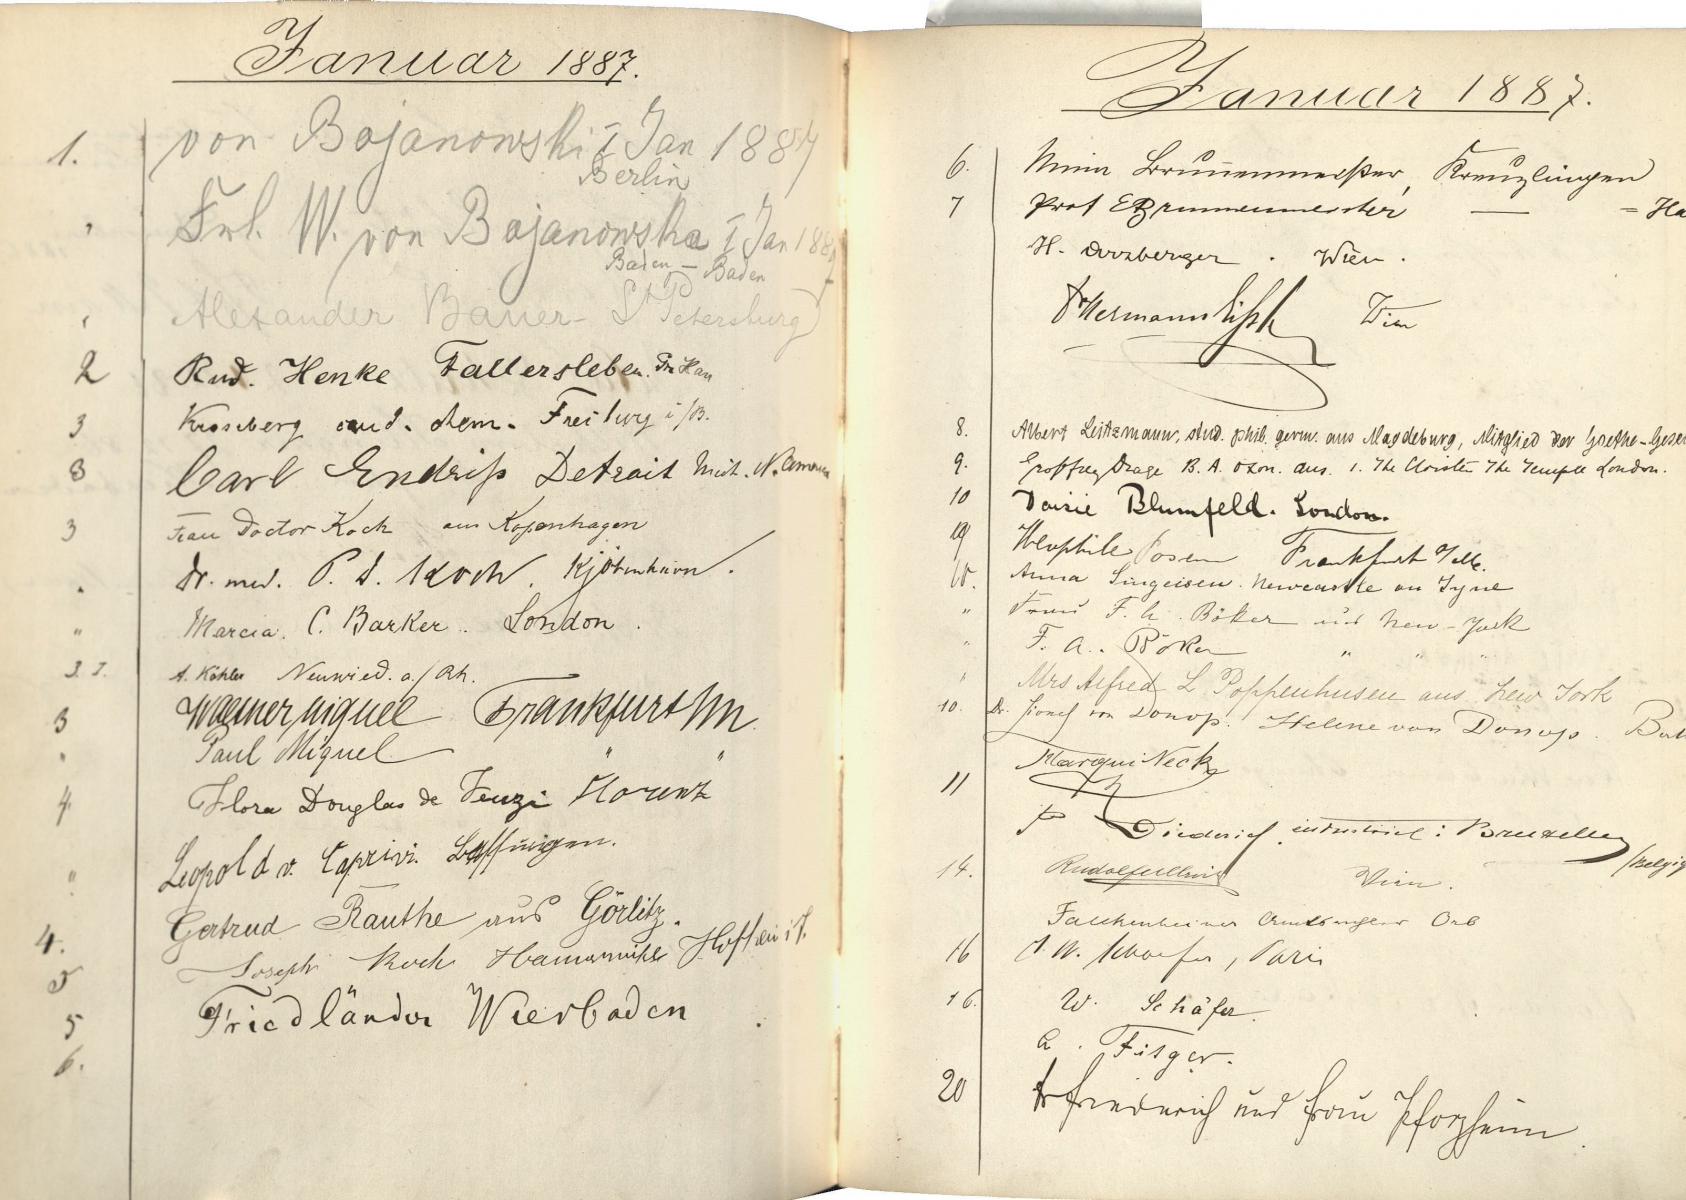 Januar 1887.
1. von Bojanowski I Jan 1887
Berlin
" Frl. W. von Bojanowska I Jan 1887
Baden-Baden
" Alexander Bauer - St Petersburg
2 Rud. Henke Fallersleben. Pr Han
3 cand. chem. Freiburg i/B.
3 Carl Endriß Detroit Mich. N. America
3 Frau Doctor Koch aus Kopenhagen
" Dr. med. P. D. Koch. Kjöbenhavn.
" Marcia. C. Barker.. London.
3. J. A. Köhler Neuwied. a./Rh.
3 Miquel Frankfurt M.
" Paul Miquel " "
4 Flora Douglas de Fenzi Florenz
" Leopold v. Caprivi.
4. Gertrud Rauthe aus Görlitz.
5 Joseph Koch
5 Friedländer Wiesbaden
6.
Januar 1887.
6. Brunnenmeister, Kreuzlingen
7 Prof E Brunnenmeister — = Ha
H. Dorzberger. Wien.
Dr Hermann Wien
8. Albert Leitzmann, stud. phil. germ. aus Magdeburg, Mitglied der Goethe-Gesel
9. Geoffrey Drage B. A. Oxon. aus. 1. The Cloisters The Temple London.
10 Daisie Blumfeld. London.
10 Theophile Posen Frankfurt
10. Anna Singeisen. Newcastle on Tyne
" Frau F. A. Böker aus New-York
" F. A. Böker " " "
" Mrs Alfred L Poppenhusen aus New York
10. Dr. Lionel von Donop. Helene von Donop.
11 Marqui Neck
Diederich industriel: Bruxelles
/Belgiq
14. Wien.
Orb
16 Schaefer, Paris
16. W. Schäfer.
A. Fitger.
20 Dr Friedrich und Frau Pforzheim.